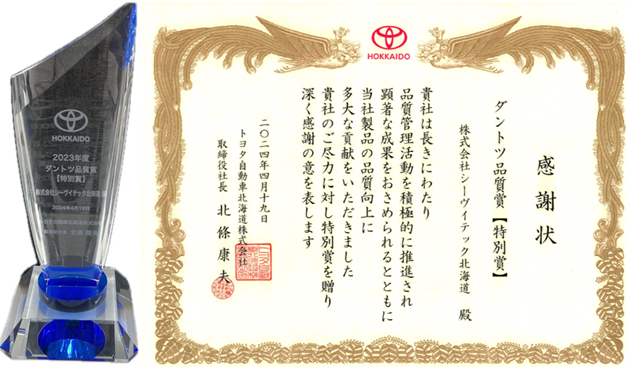 HOKKAIDO
2023年度
ダントツ品質賞
【特別賞】
株式会社シーヴイテック北海道 殿
2024年4月19日
HOKKAIDO
感謝状
ダントツ品質賞【特別賞】
株式会社シーヴイテック北海道 殿
貴社は長きにわたり
品質管理活動を積極的に推進され
顕著な成果をおさめられるとともに
当社製品の品質向上に
多大な貢献をいただきました
貴社のご尽力に対し特別賞を贈り
深く感謝の意を表します
二〇二四年四月十九日
トヨタ自動車北海道株式会社
取締役社長 北條康夫